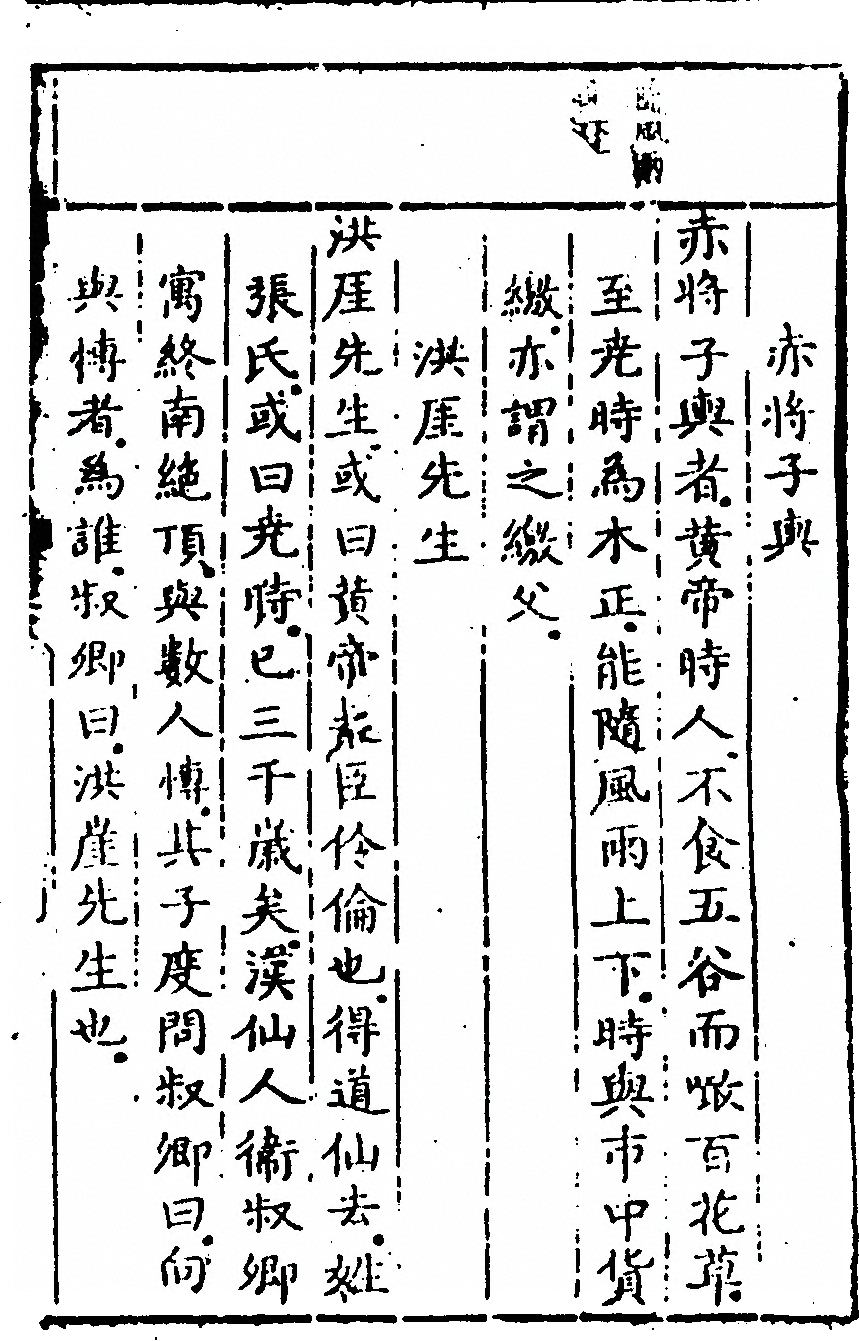 赤將子輿
赤將子輿者黃帝時人不食五谷而噉百花草
至尭時為木正能隨風雨上下時與市中貨
繳亦謂之繳父
洪厓先生
洪厓先生或曰黃帝之臣伶倫也得道仙去姓
張氏或曰尭時已三千歲矣漢仙人衛叔卿
寓終南絶頂與數人慱其子度問叔卿曰向
與慱者為誰叔卿曰洪崖先生也